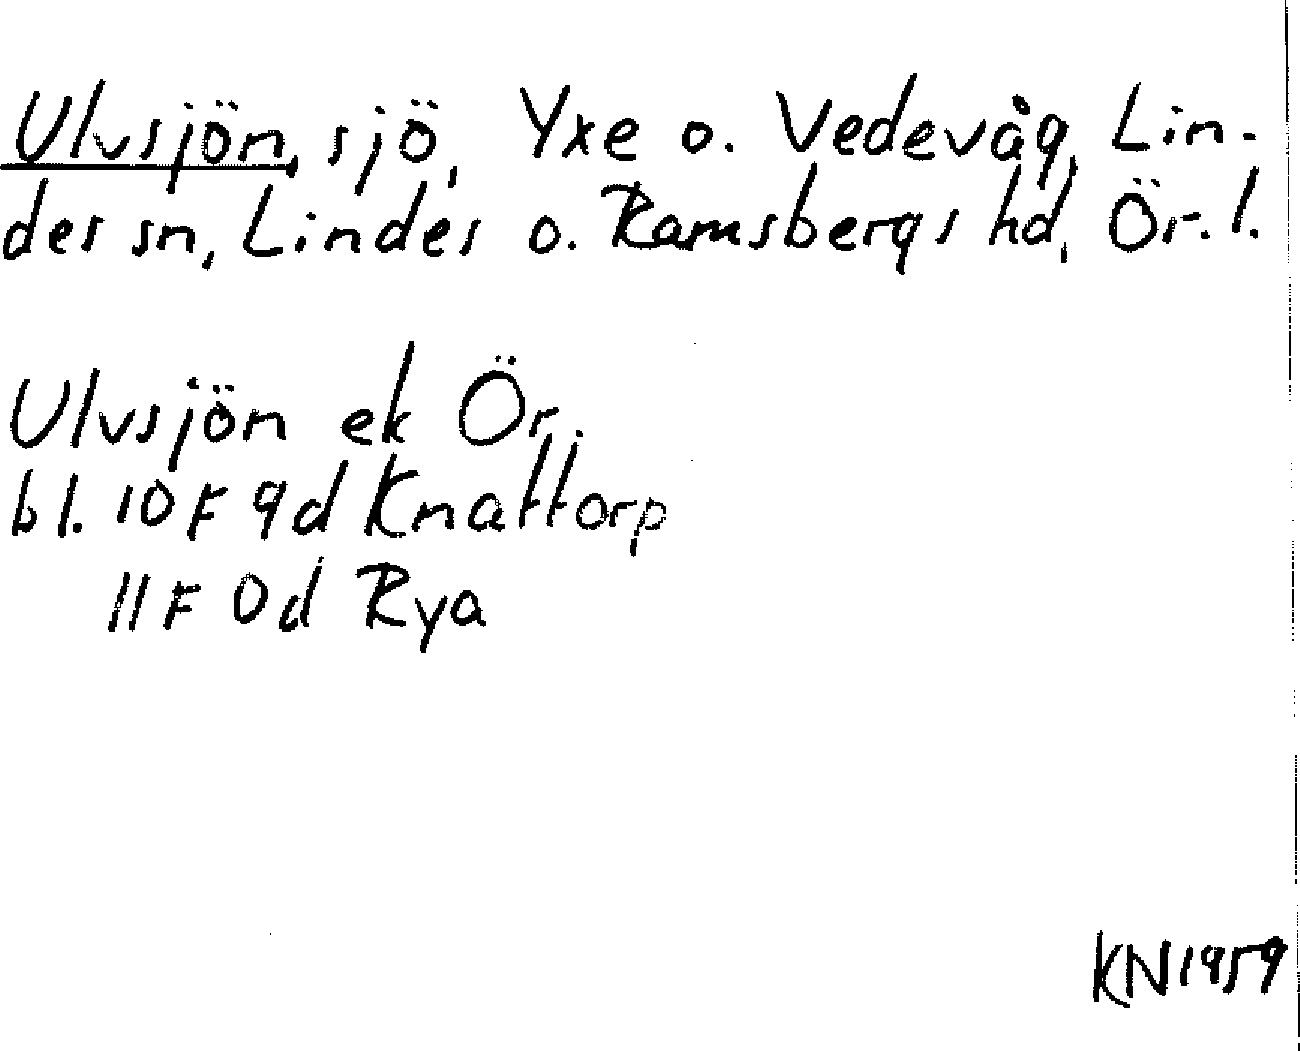 Ulvsjön, sjö, Yxe o. Vedevåg, Lin-
des sn, Lindes o. Ramsbergs hd, Ör. l.
Ulvsjön ek Ör.
bl. 10F 9d Knattorp
11F 0d Rya
KN1959